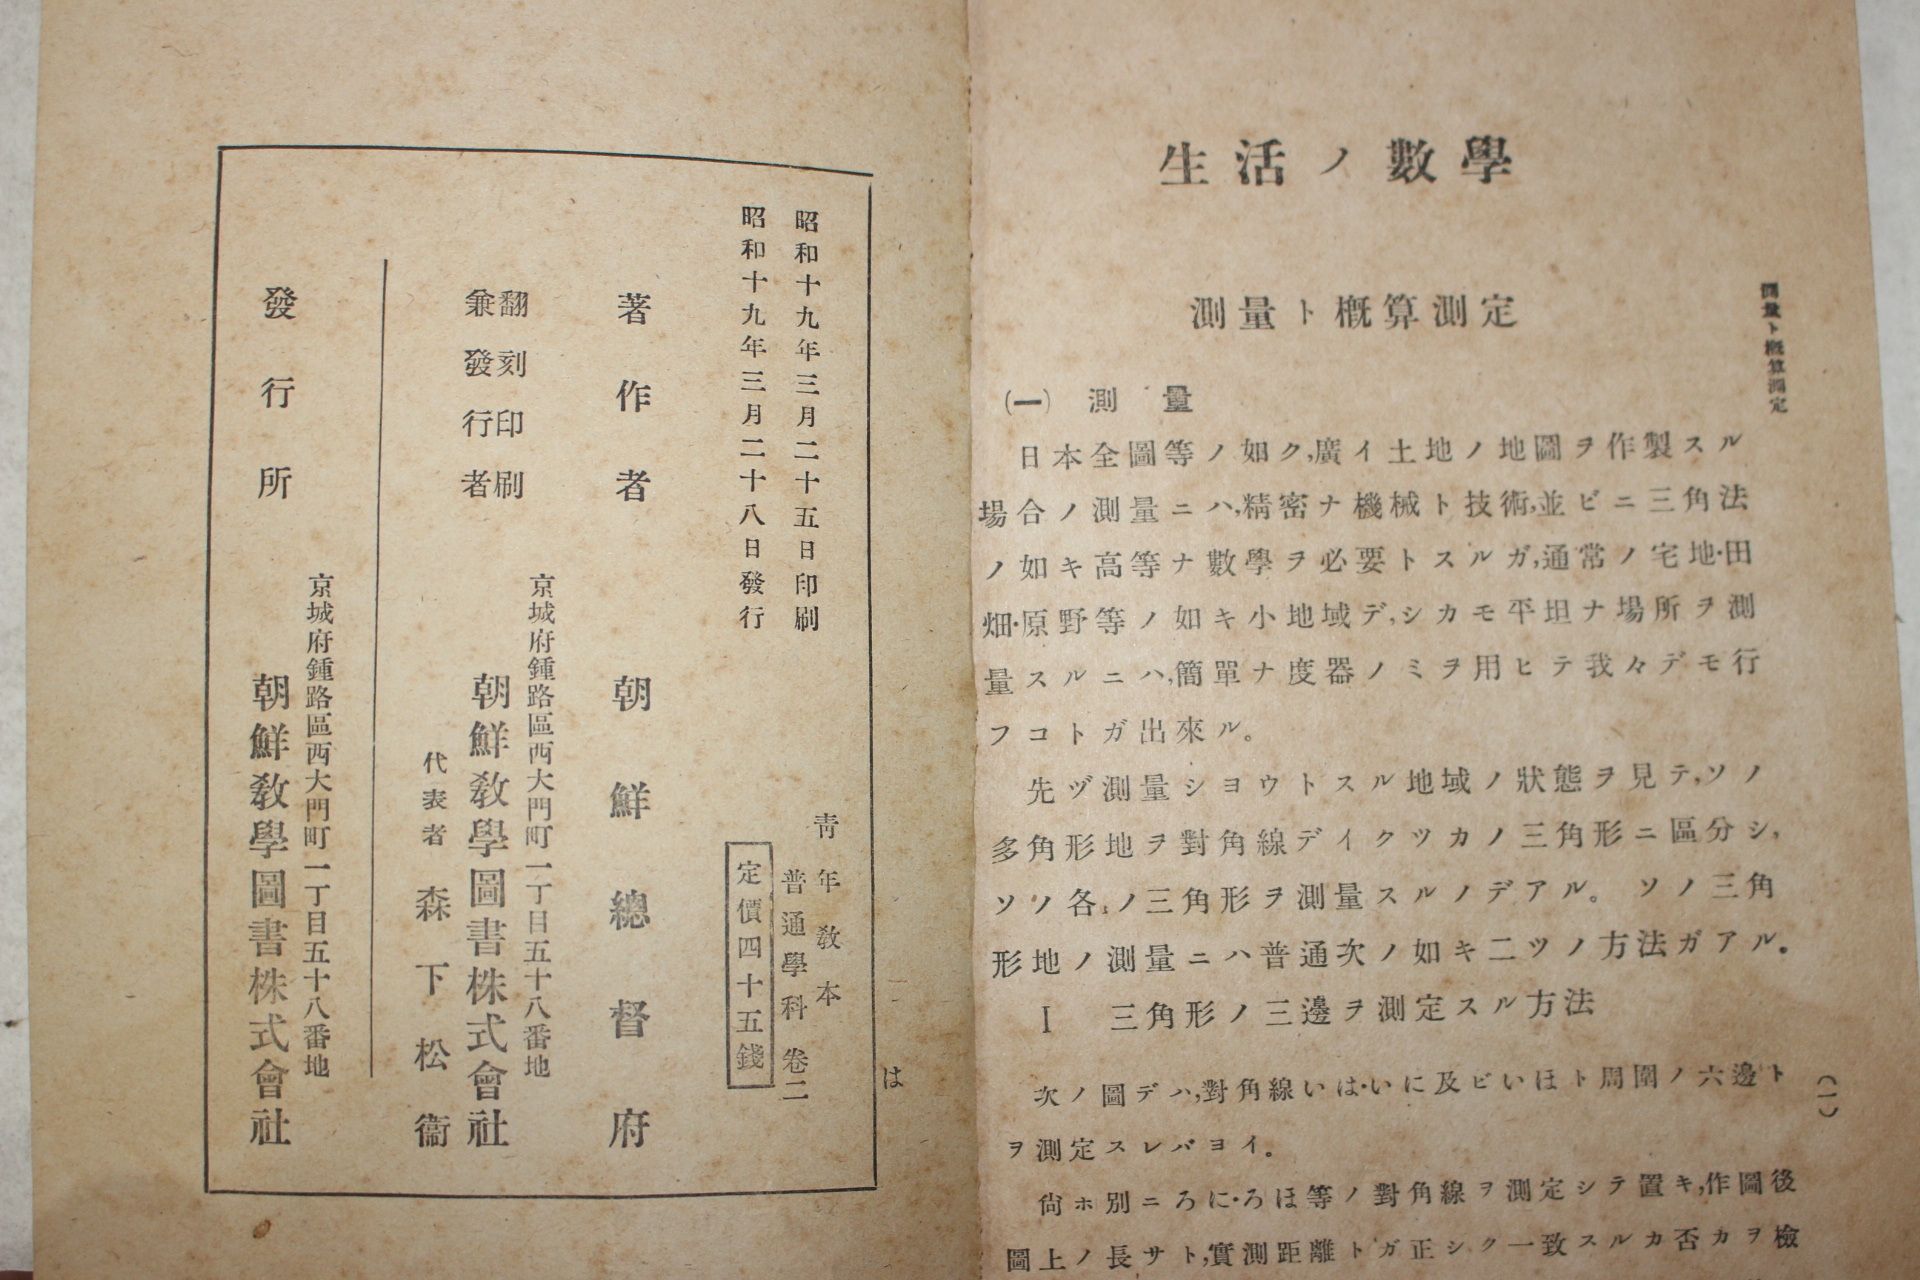 生活ノ數學
測量ト概算測定
測量ト概算測定
(一) 測量
日本全圖等ノ如ク,廣イ土地ノ地圖ヲ作製スル
場合ノ測量ニハ,精密ナ機械ト技術,並ビニ三角法
ノ如キ高等ナ數學ヲ必要トスルガ,通常ノ宅地·田
畑·原野等ノ如キ小地域デ,シカモ平坦ナ場所ヲ測
量スルニハ,簡單ナ度器ノミヲ用ヒテ我々デモ行
フコトガ出來ル。
先ヅ測量シヨウトスル地域ノ狀態ヲ見テ,ソノ
多角形地ヲ對角線デイクツカノ三角形ニ區分シ,
ソノ各ノ三角形ヲ測量スルノデアル。ソノ三角
形地ノ測量ニハ普通次ノ如キ二ツノ方法ガアル。
I 三角形ノ三邊ヲ測定スル方法
次ノ圖デハ,對角線いは·いに及ビいほト周圍ノ六邊ト
ヲ測定スレバヨイ。
尙ホ別ニろに·ろほ等ノ對角線ヲ測定シテ置キ,作圖後
圖上ノ長サト,實測距離トガ正シク一致スルカ否カヲ檢
(一)
は
昭和十九年三月二十五日印刷
昭和十九年三月二十八日發行
靑年敎本
普通學科 卷二
定價四十五錢
著作者 朝鮮總督府
翻刻印刷
兼發行者
京城府鍾路區西大門町一丁目五十八番地
朝鮮敎學圖書株式會社
代表者 森下松衞
發行所
京城府鍾路區西大門町一丁目五十八番地
朝鮮敎學圖書株式會社